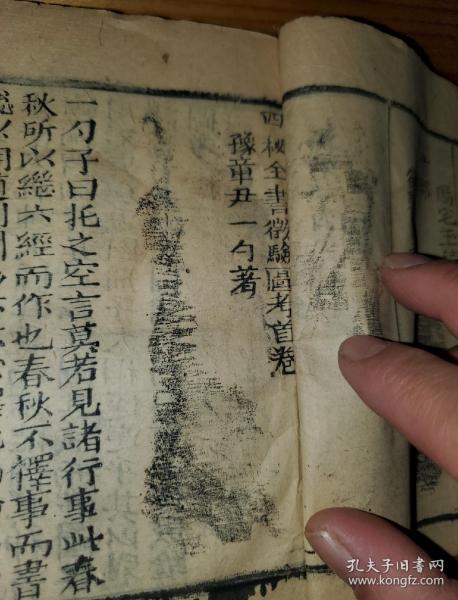 四秘全書徵驗圖考首卷
豫章尹一勺著
一勺子曰托之空言莫若見諸行事此春
秋所以繼六經而作也春秋不擇事而書
孔夫子旧书网
www.kongfz.com